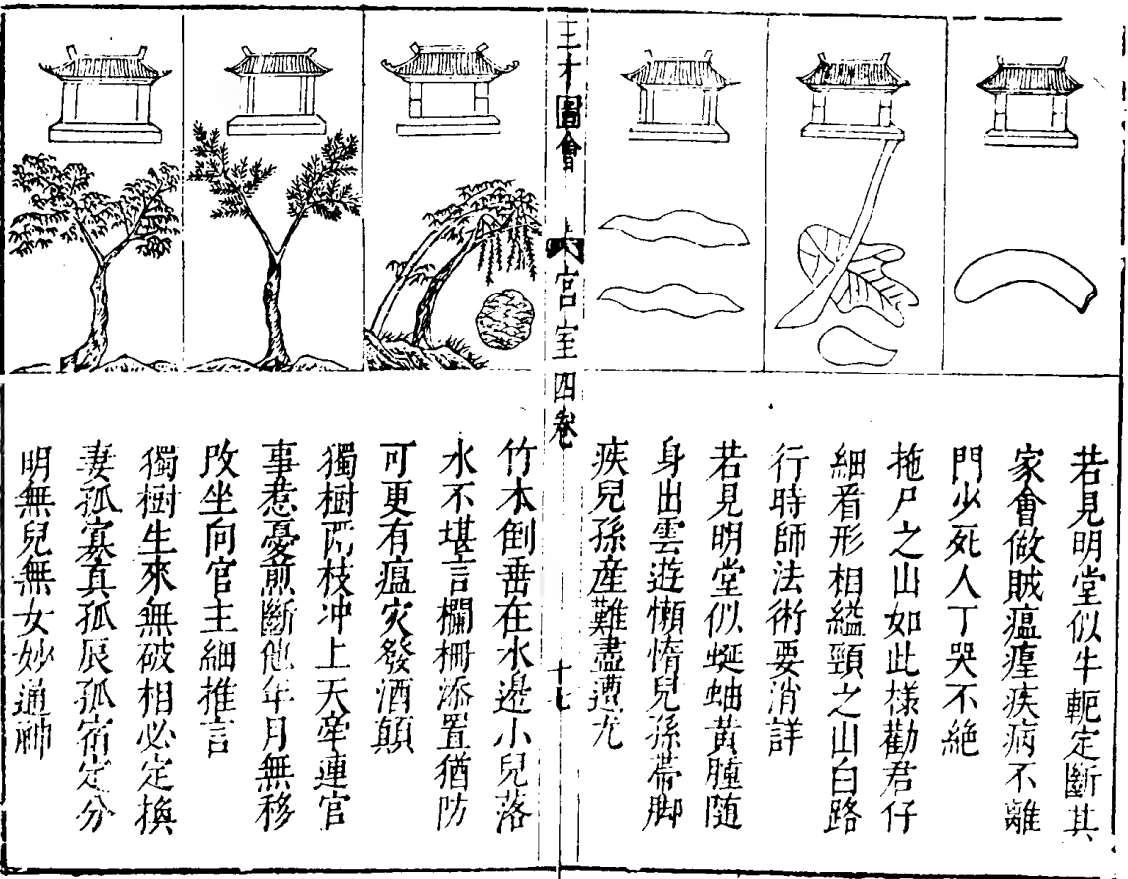 若見明堂似牛軛定斷其
家會做賊瘟瘟疾病不離
門少死人丁哭不絶
拖尸之山如此樣勸君仔
細看形相縊頸之山白路
行時師法術要消詳
若見明堂似蜒蚰黃腫随
身出雲遊懶惰兒孫帶脚
疾兒孫産難盡遭尤
三才圖會
宮室四卷
十七
竹木倒垂在水邊小兒落
水不堪言欄柵添置猶防
可更有瘟灾發酒顛
獨樹兩枝冲上天牽連官
事惹憂煎斷他年月無移
改坐向官主細推言
獨樹生來無破相必定換
妻孤寡真孤辰孤宿定分
明無兒無女妙通神